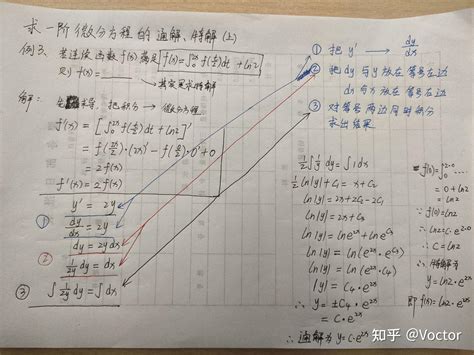 求一阶微分方程的通解、特解(2)
例3、若连续函数f(x)满足f(x)=∫₀²ˣ f(t/2)dt+ln2
则f(x)= 其实是求特解
解: 求导, 把积分→微分方程
f'(x)=[∫₀²ˣ f(t/2)dt+ln2]'
=f(2x/2)·(2x)'-f(0/2)·0'+0
=2f(x)
f'(x)=2f(x)
① y'=2y
dy/dx=2y
② dy=2ydx
1/2y dy=dx
③ ∫1/2y dy=∫dx
① 把y'→dy/dx
② 把dy与y放在等号左边
dx与x放在等号右边
③ 对等号两边同时积分
求出结果
½∫1/y dy=∫1dx
½ln|y|+C₁=x+C₂
ln|y|=2x+2C₂-2C₁
ln|y|=2x+C₃
ln|y|=lne²ˣ+lneᶜ³
ln|y|=ln(e²ˣ·eᶜ³)
ln|y|=ln(C₄·e²ˣ)
|y|=C₄·e²ˣ
∴ y=±C₄·e²ˣ
=C·e²ˣ
∴ 通解为y=C·e²ˣ
=0+ln2
=ln2
∴ f(0)=ln2
∴ ln2=C·e²˙⁰
∴ C=ln2
∴ 特解为
y=ln2·e²ˣ
即f(x)=ln2·e²ˣ
知乎 @Voctor